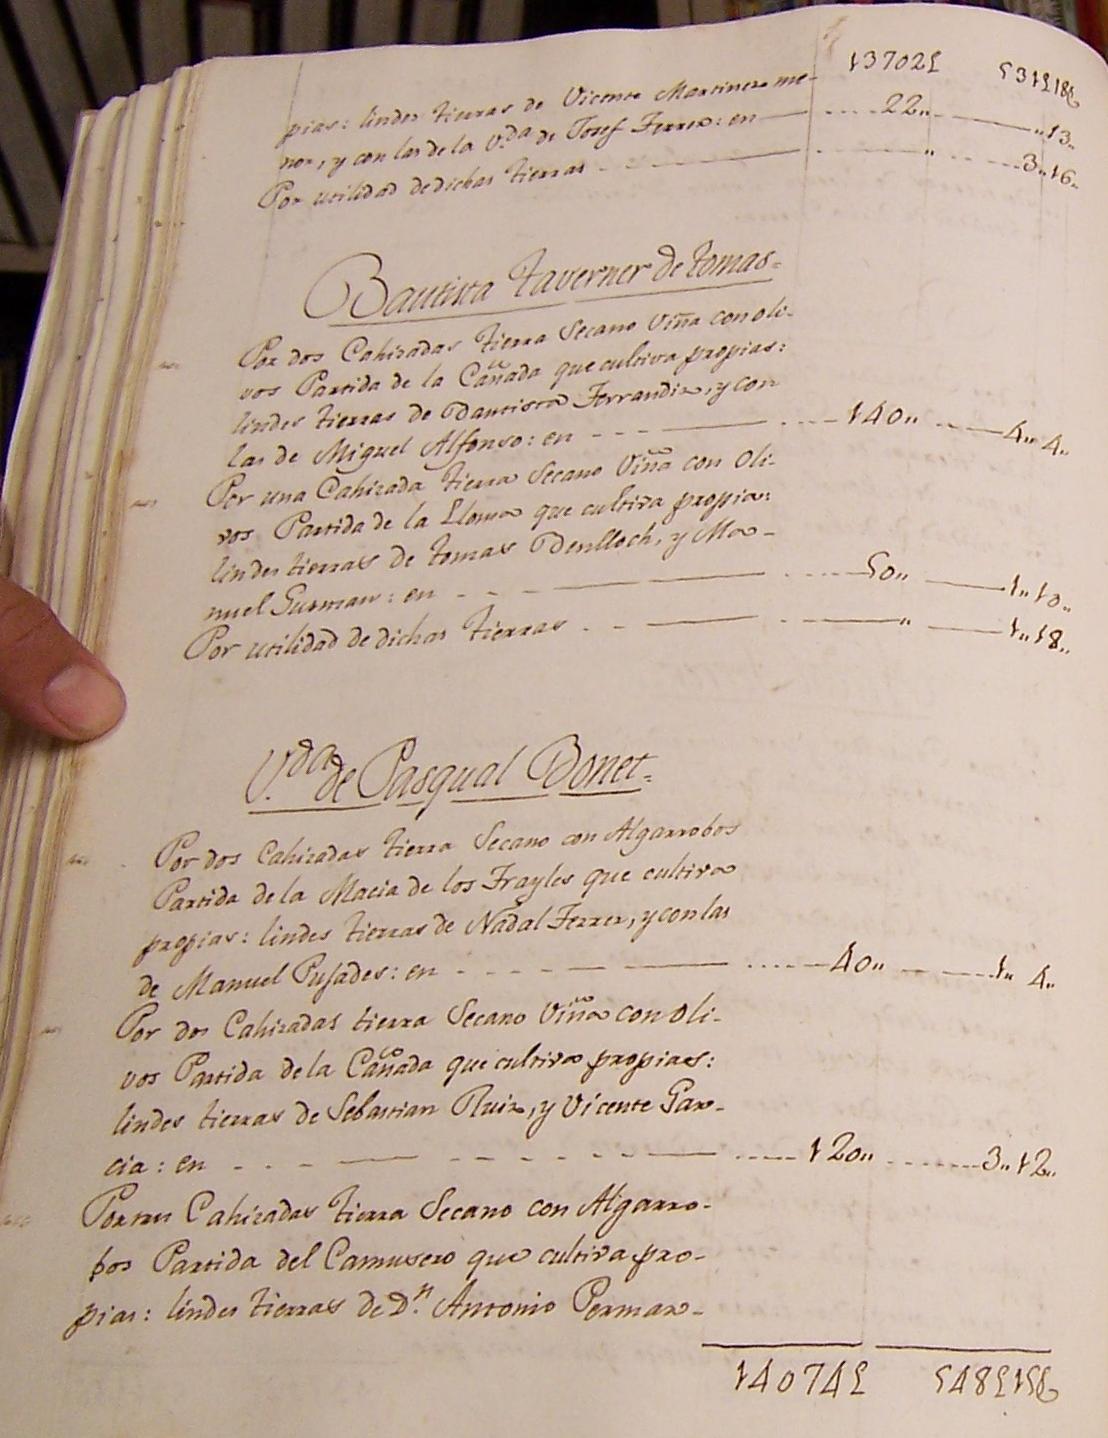 13702£ 531£18₰
pias: lindes tierras de Vicente Martinez me-
nor, y con las de la V.da de Josef Ferrer: en 22,, ,,13,,
Por utilidad de dichas tierras ,, 3,,16,,
Bautista Taverner de tomas=
Por dos Cahizadas tierra Secano Viña con oli-
vos Partida de la Cañada que cultiva propias:
lindes tierras de Bautista Ferrandiz, y con
las de Miguel Alfonso: en 140,, 4,, 4,,
Por una Cahizada tierra Secano Viña con Oli-
vos Partida de la Lloma que cultiva propia:
lindes tierras de tomas Benlloch, y Ma-
nuel Gusman: en 50,, 1,,10,,
Por utilidad de dichas tierras ,, 1,,18,,
V.da de Pasqual Bonet=
Por dos Cahizadas tierra Secano con Algarrobos
Partida de la Macia de los Frayles que cultiva
propias: lindes tierras de Nadal Ferrer, y con las
de Manuel Pujades: en 40,, 1,, 4,,
Por dos Cahizadas tierra Secano Viña con Oli-
vos Partida de la Cañada que cultiva propias:
lindes tierras de Sebastian Ruiz, y Vicente Gar-
cia: en 120,, 3,,12,,
Por tres Cahizadas tierra Secano con Algarro-
bos Partida del Camusero que cultiva pro-
pias: lindes tierras de D.n Antonio Permar-
14074£ 548£15₰